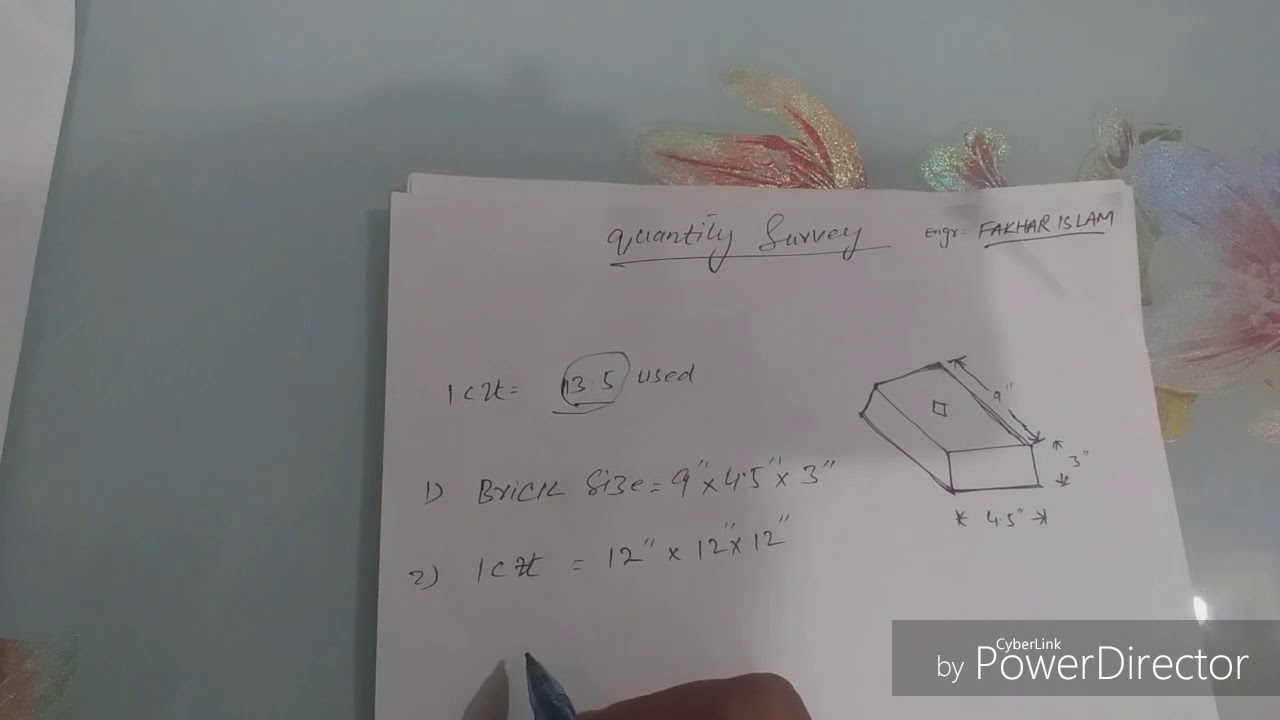 Quantity Survey
Engr= FAKHAR ISLAM
1cft= 13.5 used
9"
3"
4.5"
1) Brick Size = 9" x 4.5" x 3"
2) 1cft = 12" x 12" x 12"
CyberLink
by PowerDirector